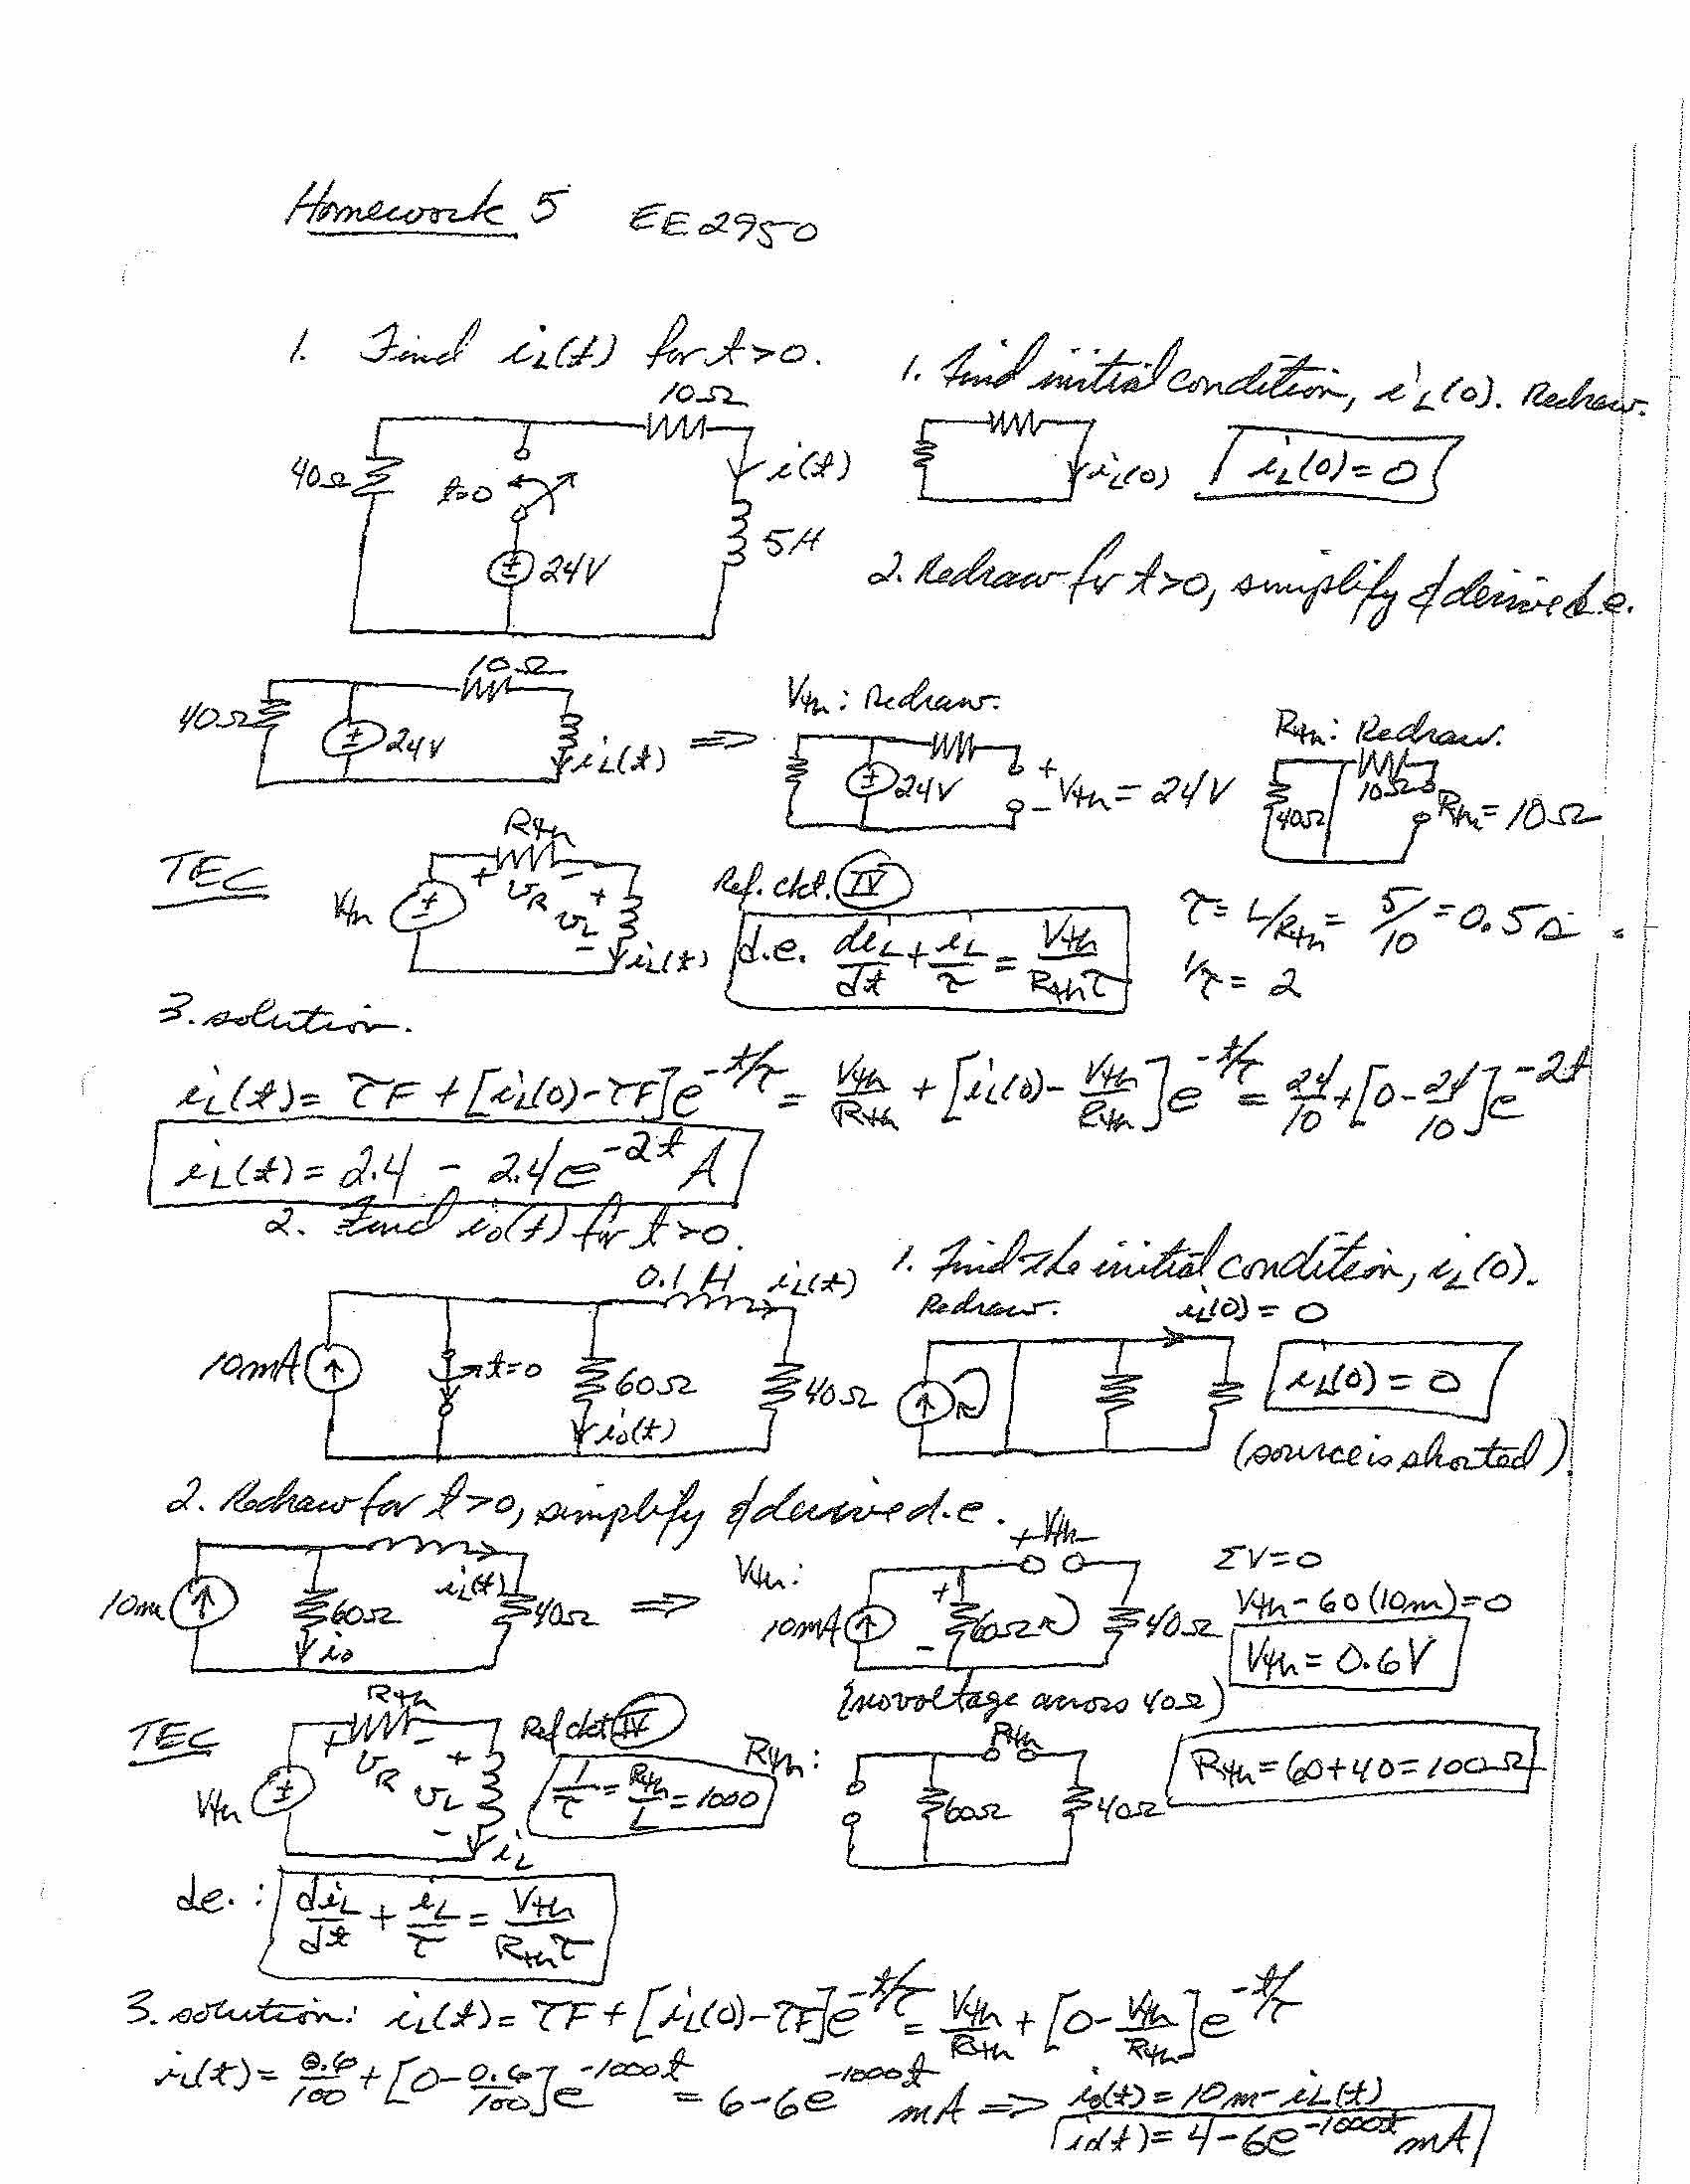 Homework 5 EE2950
1. Find iL(t) for t>0.
10Ω
40Ω
t=0
i(t)
5H
24V
1. Find initial condition, iL(0). Redraw.
iL(0)
iL(0)=0
2. Redraw for t>0, simplify & derive d.e.
10Ω
40Ω
24V
iL(t)
⇒
Vth: Redraw.
24V
+
Vth = 24V
-
Rth: Redraw.
10Ω
40Ω
Rth=10Ω
TEC
Rth
Vth
+ vR -
+ vL -
iL(t)
Ref. ckt. IV
d.e. diL/dt + iL/τ = Vth/Rthτ
τ= L/Rth = 5/10 = 0.5s
1/τ = 2
3. solution.
iL(t)= τF + [iL(0)-τF]e^-t/τ = Vth/Rth + [iL(0)- Vth/Rth]e^-t/τ = 24/10 + [0-24/10]e^-2t
iL(t)= 2.4 - 2.4e^-2t A
2. Find io(t) for t>0.
0.1 H iL(t)
10mA
t=0
60Ω
40Ω
io(t)
1. Find the initial condition, iL(0).
Redraw. iL(0)=0
iL(0)=0
(source is shorted)
2. Redraw for t>0, simplify & derive d.e.
10m
60Ω
iL(t)
40Ω
io
⇒
Vth:
+Vth-
10mA
+
-
60Ω
40Ω
(no voltage across 40Ω)
ΣV=0
Vth-60(10m)=0
Vth=0.6V
TEC
Rth
Vth
+ vR -
+ vL -
iL
Ref ckt IV
1/τ = Rth/L = 1000
Rth:
Rth
60Ω
40Ω
Rth=60+40=100Ω
de.: diL/dt + iL/τ = Vth/Rthτ
3. solution: iL(t)= τF + [iL(0)-τF]e^-t/τ = Vth/Rth + [0- Vth/Rth]e^-t/τ
iL(t)= 0.6/100 + [0-0.6/100]e^-1000t = 6-6e^-1000t mA ⇒ io(t)=10m-iL(t)
io(t)= 4-6e^-1000t mA